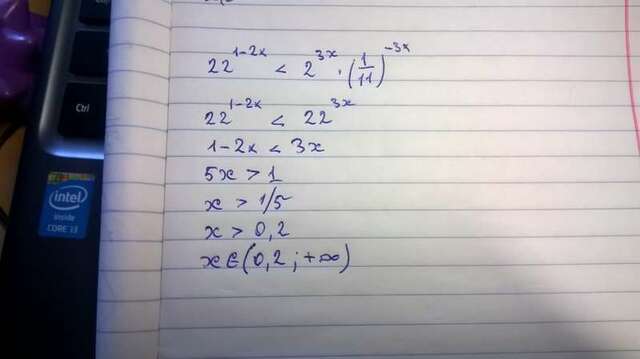 22^{1-2x} < 2^{3x} · (1/11)^{-3x}
22^{1-2x} < 22^{3x}
1-2x < 3x
5x > 1
x > 1/5
x > 0,2
x ∈ (0,2 ; +∞)
Ctrl
intel
inside
CORE i3